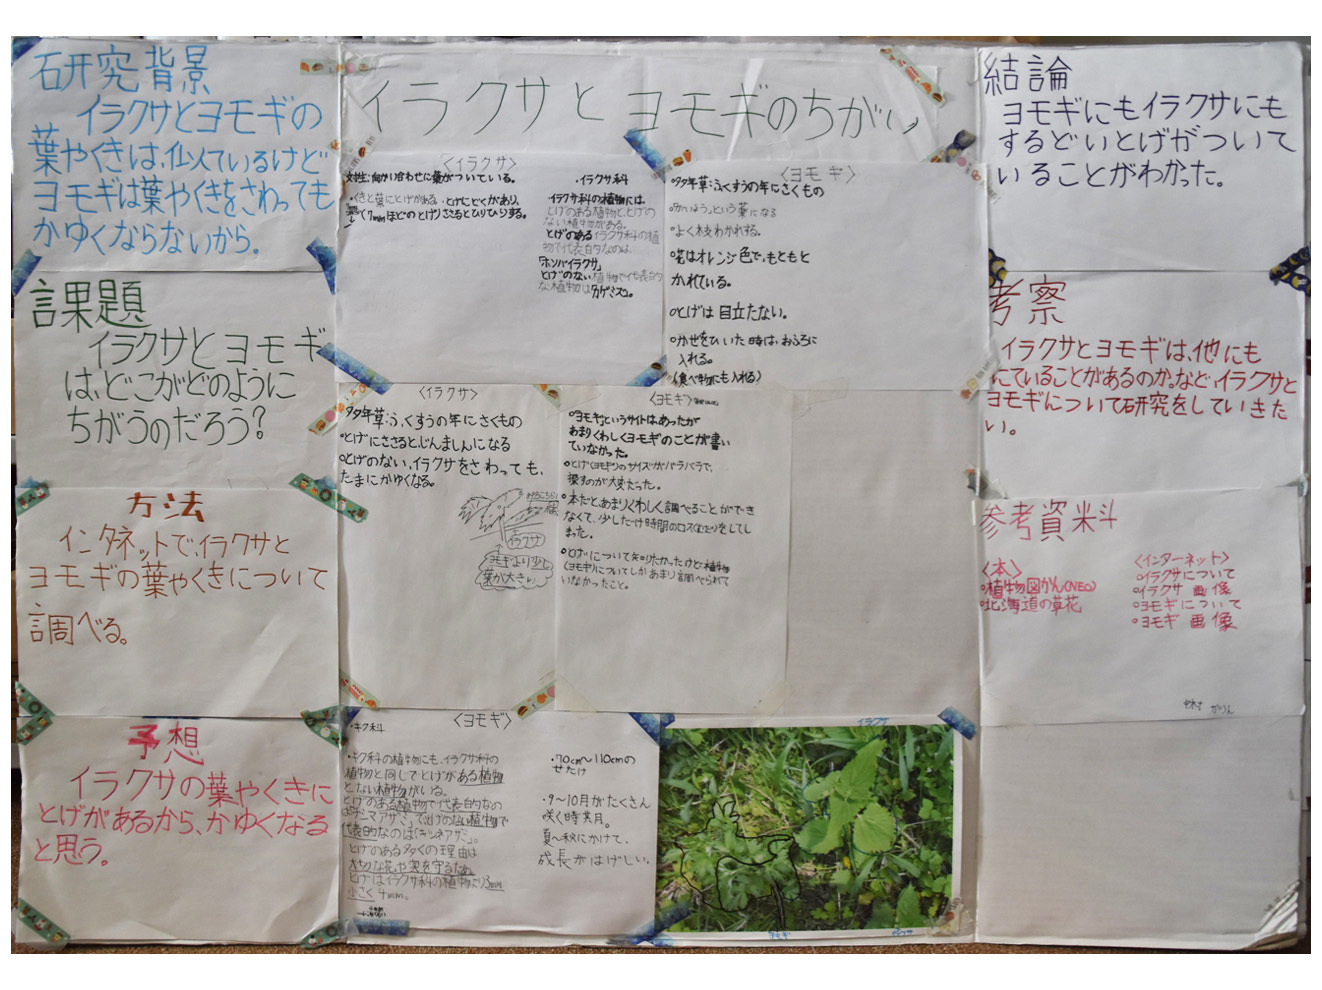 イラクサとヨモギのちがい
研究背景
イラクサとヨモギの
葉やくきは、似ているけど
ヨモギは葉やくきをさわっても
かゆくならないから。
課題
イラクサとヨモギ
は、どこがどのように
ちがうのだろう?
方法
インタネットで、イラクサと
ヨモギの葉やくきについて
調べる。
予想
イラクサの葉やくきに
とげがあるから、かゆくなる
と思う。
〈イラクサ〉
向かい合わせに葉がついている。
・くきと葉にとげがある。とげにどくがあり、
1mmほどのとげがささるとひりひりする。
・イラクサ科
イラクサ科の植物には、
とげのある植物と、とげの
ない植物がある。
とげのあるイラクサ科の植
物で代表的なのは、
「ホソバイラクサ」
とげのない植物で代表的
な植物は
〈ヨモギ〉
多年草:ふくすうの年にさくもの
という薬になる
よく枝わかれする。
花はオレンジ色で、もともと
かれている。
とげは目立たない。
かぜをひいた時は、おふろに
入れる。
(食べ物にも入れる)
〈イラクサ〉
多年草:ふくすうの年にさくもの
とげにささるとじんましんになる
とげのない、イラクサをさわっても、
たまにかゆくなる。
イラクサ
ヨモギより少し
葉が大きい。
〈ヨモギ〉
ヨモギというサイトはあったが
あまりくわしくヨモギのことが書い
ていなかった。
とげ(ヨモギ)のサイズがバラバラで、
探すのが大変だった。
本だと、あまりくわしく調べることができ
なくて、少しだけ時間のロスをしてし
まった。
とげについて知りたかったけど植物
(ヨモギ)についてしかあまり調べられて
いなかったこと。
〈ヨモギ〉
・キク科
・キク科の植物にも、イラクサ科の
植物と同じでとげがある植物
とない植物がいる。
とげのある植物で代表的なの
は「チシマアザミ」でとげのない植物で
代表的なのは「キツネアザミ」。
とげのある多くの理由は
大切な花や実を守るため
とげはイラクサ科の植物より3mm
小さく4mm。
・70cm〜110cmの
せたけ
・9〜10月がたくさん
咲く時期。
夏〜秋にかけて、
成長がはげしい。
イラクサ
ヨモギ
イラクサ
結論
ヨモギにもイラクサにも
するどいとげがついて
いることがわかった。
考察
イラクサとヨモギは、他にも
にていることがあるのか。など、イラクサと
ヨモギについて研究をしていきた
い。
参考資料
〈本〉
植物図かん(NEO)
北海道の草花
〈インターネット〉
イラクサについて
イラクサ 画像
ヨモギについて
ヨモギ 画像